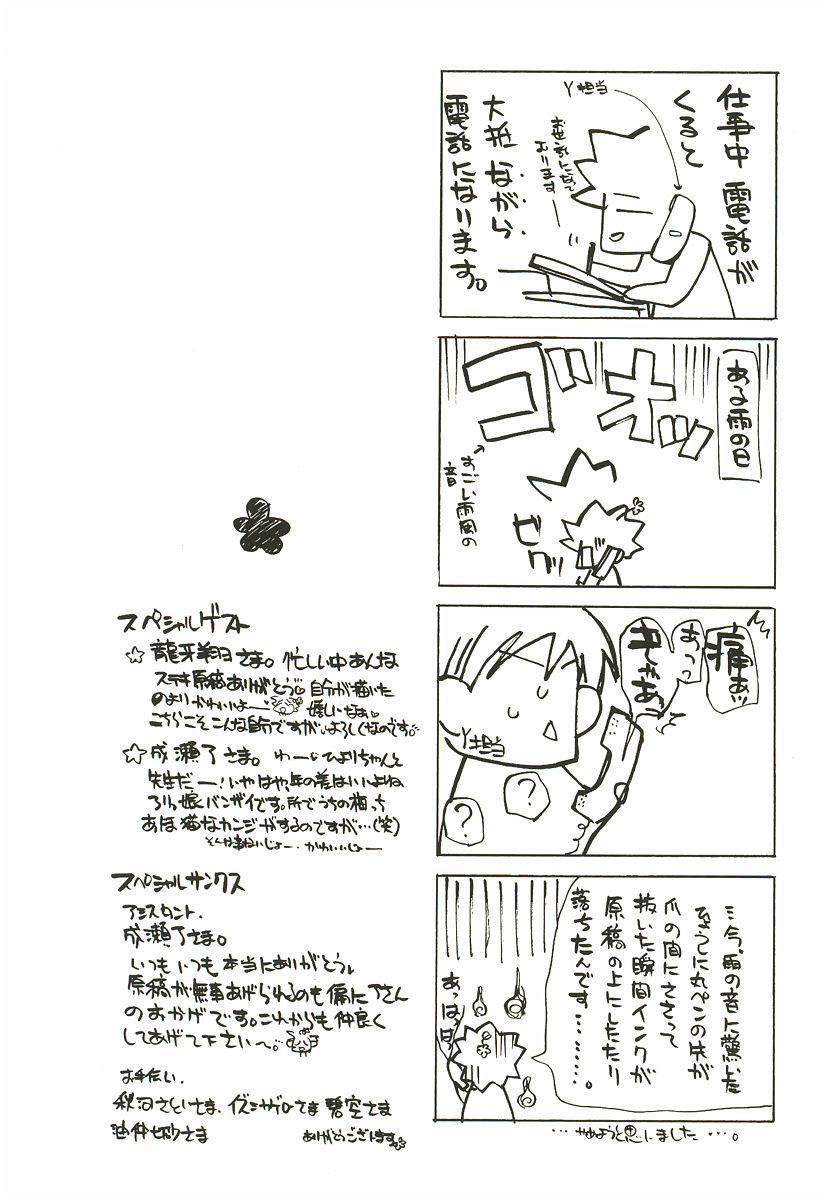 仕事中 電話が
くると
Y担当
お世話になって
おります
大抵ながら
電話になります。
ある雨の日
ゴオッ
すごい雨風の
音
ビクッ
痛あッ
あっっ
きゃあっ
Y担当
?
?
…今、雨の音に驚いた
ひょうしに丸ペンの先が
爪の間にささって
抜いた瞬間インクが
原稿の上にしたたり
落ちたんです………。
あっはっはっ
…やめようと思いました…。
スペシャルゲスト
☆龍牙翔さま。忙しい中あんな
ステキ原稿ありがとう。自分が描いた
のよりかわいいよー 嬉しいなぁ。
こちらこそこんな自分ですが、よろしくなのです。
☆成瀬了さま。わー、ひよりちゃんと
先生だー!いやはや、年の差はいいよね
ロリ娘バンザイです。所でうちの
あほ猫なカンジがするのですが…(笑)
スペシャルサンクス
アシスタント.
成瀬了さま。
いつもいつも本当にありがとう。
原稿が無事あげられるのも偏に了さん
のおかげです。これからも仲良く
してあげて下さい〜。
お手伝い.
秋河さといさま、イズミサブローさま 碧空さま
ありがとうございます